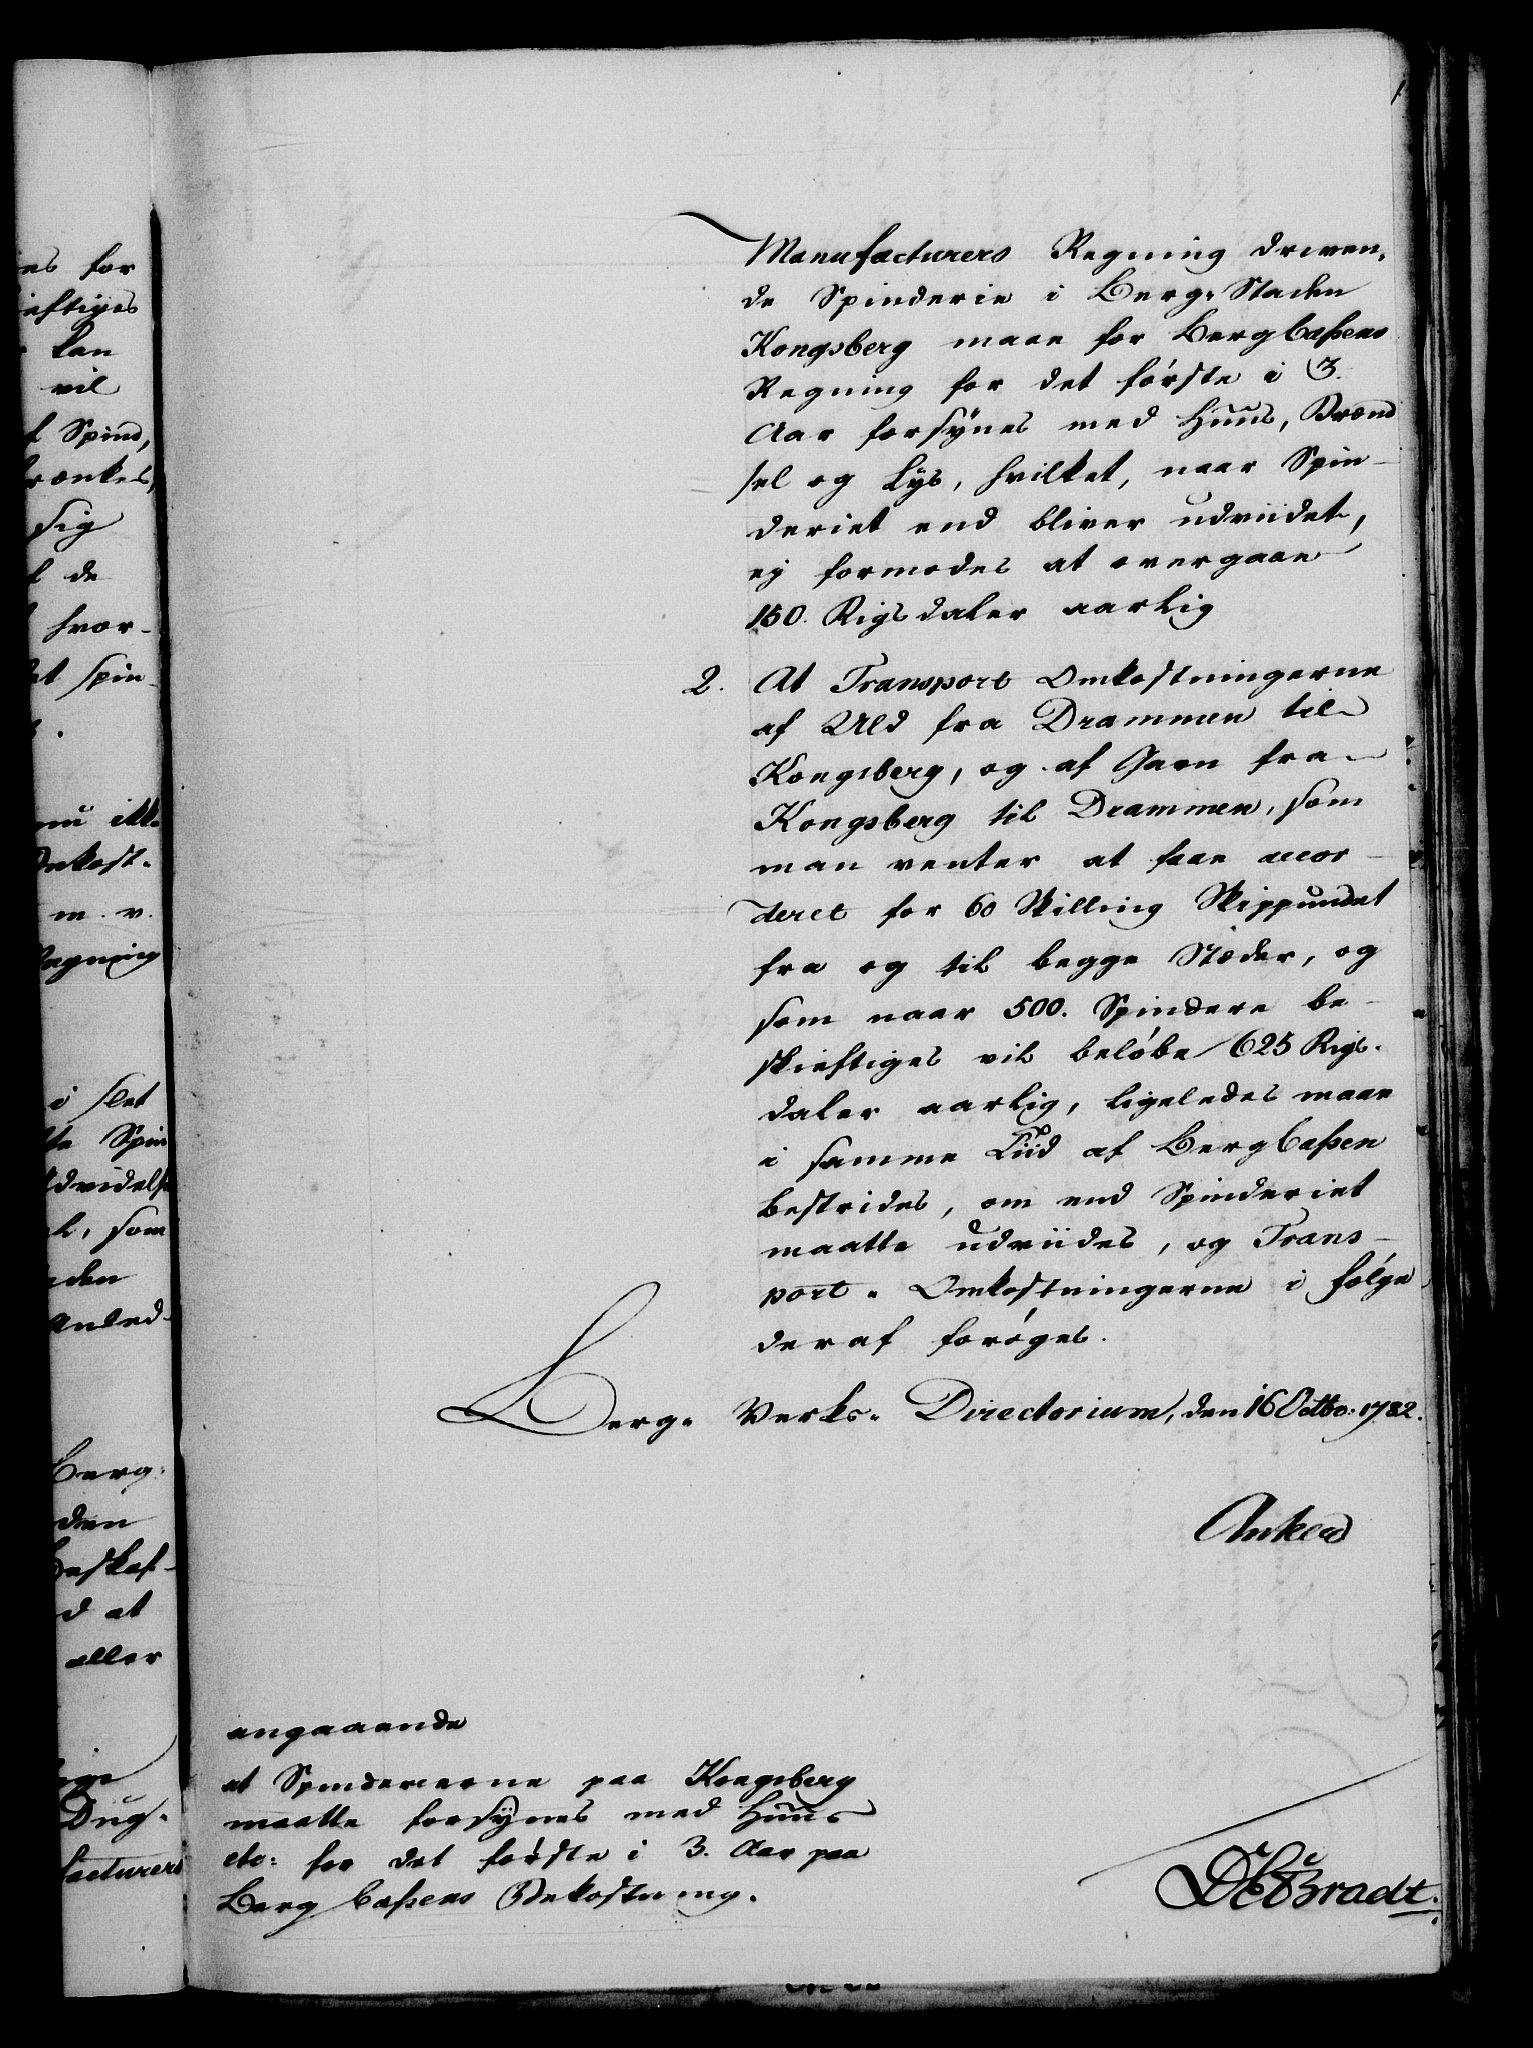 Manufacturers Regning driven,
de Spinderie i Berg-Staden
Kongsberg maae for BergCassens
Regning for det første i 3.
Aar forsÿnes med Huus, Brænd
sel og Lÿs, hvilket, naar Spin-
deriet end bliver udviidet,
ej formodes at overgaae
150. Rigsdaler aarlig
2. At Transport Omkostningerne
af Uld fra Drammen til
Kongsberg, og af Garn fra
Kongsberg til Drammen, som
man venter at faae accor-
deret for 60 Skilling Skippundet
fra og til begge Stæder, og
som naar 500. Spindere be-
skieftiges vil beløbe 625 Rigs-
daler aarlig, ligeledes maae
i samme Tiid af BergCassen
bestrides, om end Spinderiet
maatte udviides, og Trans-
port-Omkostningerne i følge
deraf forøges.
Berg- Verks- Directorium, den 16 Octbo: 1782.
Anker
angaaende
at Spinderierne paa Kongsberg
maatte forsÿnes med Huus
etc: for det første i 3. Aar paa
Berg Cassens Bekostning.
Bradt.
es for
ieftiges
kan
vil
f Spind,
rænkes,
sig
f de
hvor-
et spin-
nu ikke
Bekost-
m. v.
Regning
i slet
te Spin
Udvidelse
som
den
Anled-
Berg-
den
Beskaf-
d at
eller
Dug-
facturers